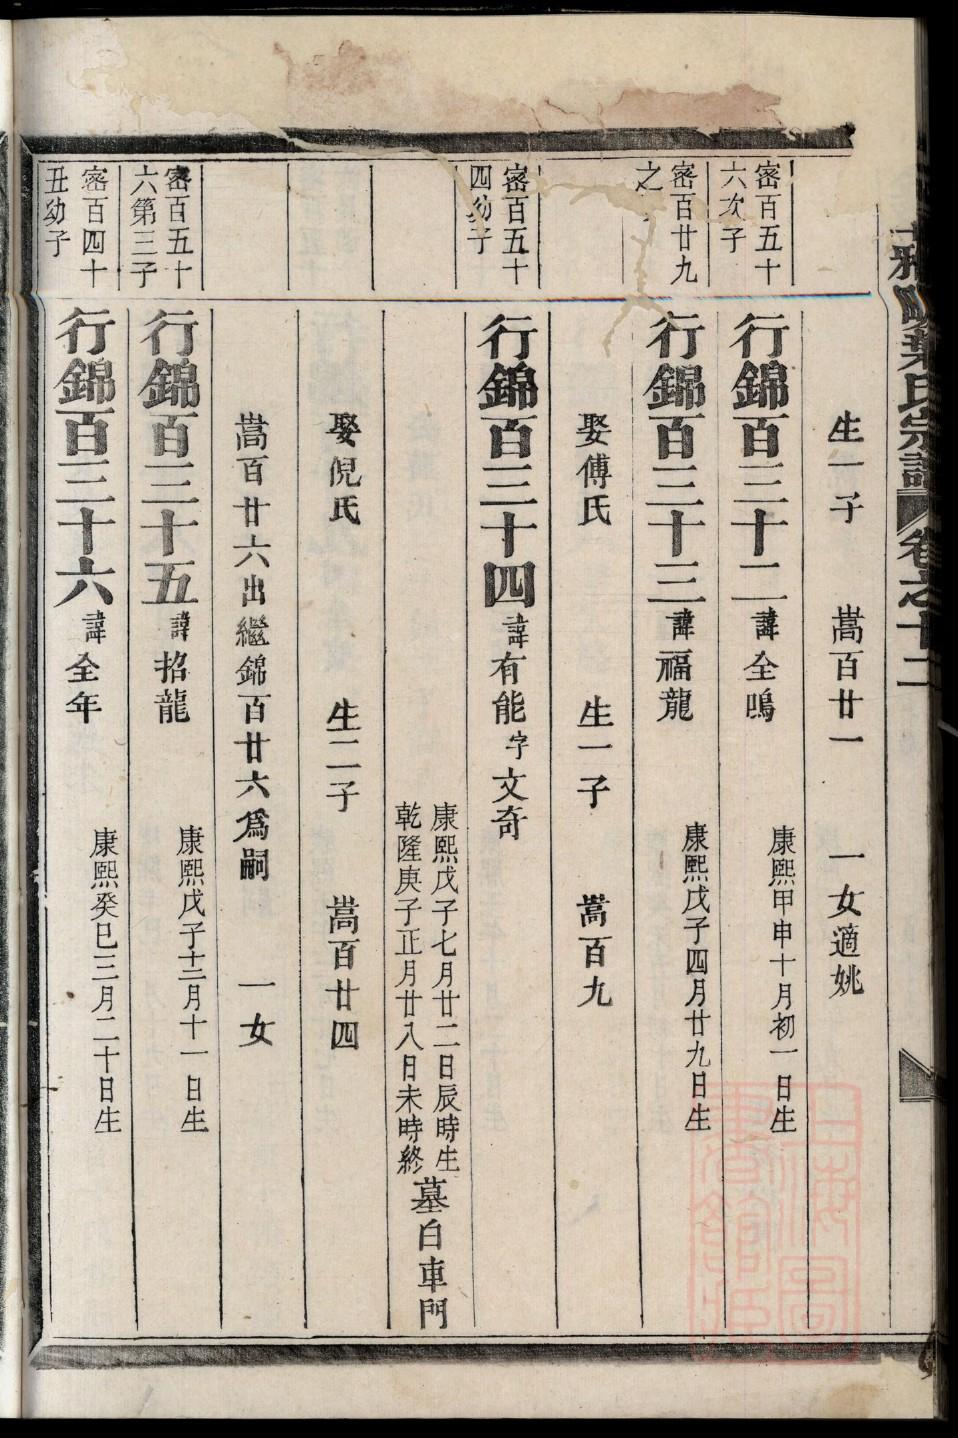 雅陂葉氏宗譜 卷之十二
生一子 嵩百廿一 一女適姚
密百五十
六次子
行錦百三十二 諱全鳴 康熙甲申十月初一日生
密百廿九
之
行錦百三十三 諱福龍 康熙戊子四月廿九日生
娶傅氏 生一子 嵩百九
密百五十
四幼子
行錦百三十四 諱有能 字文奇
康熙戊子七月廿二日辰時生
乾隆庚子正月廿八日未時終
墓白車門
娶倪氏 生二子 嵩百廿四
嵩百廿六出繼錦百廿六爲嗣 一女
密百五十
六第三子
行錦百三十五 諱招龍 康熙戊子十二月十一日生
密百四十
丑幼子
行錦百三十六 諱全年 康熙癸巳三月二十日生
上海圖書館藏